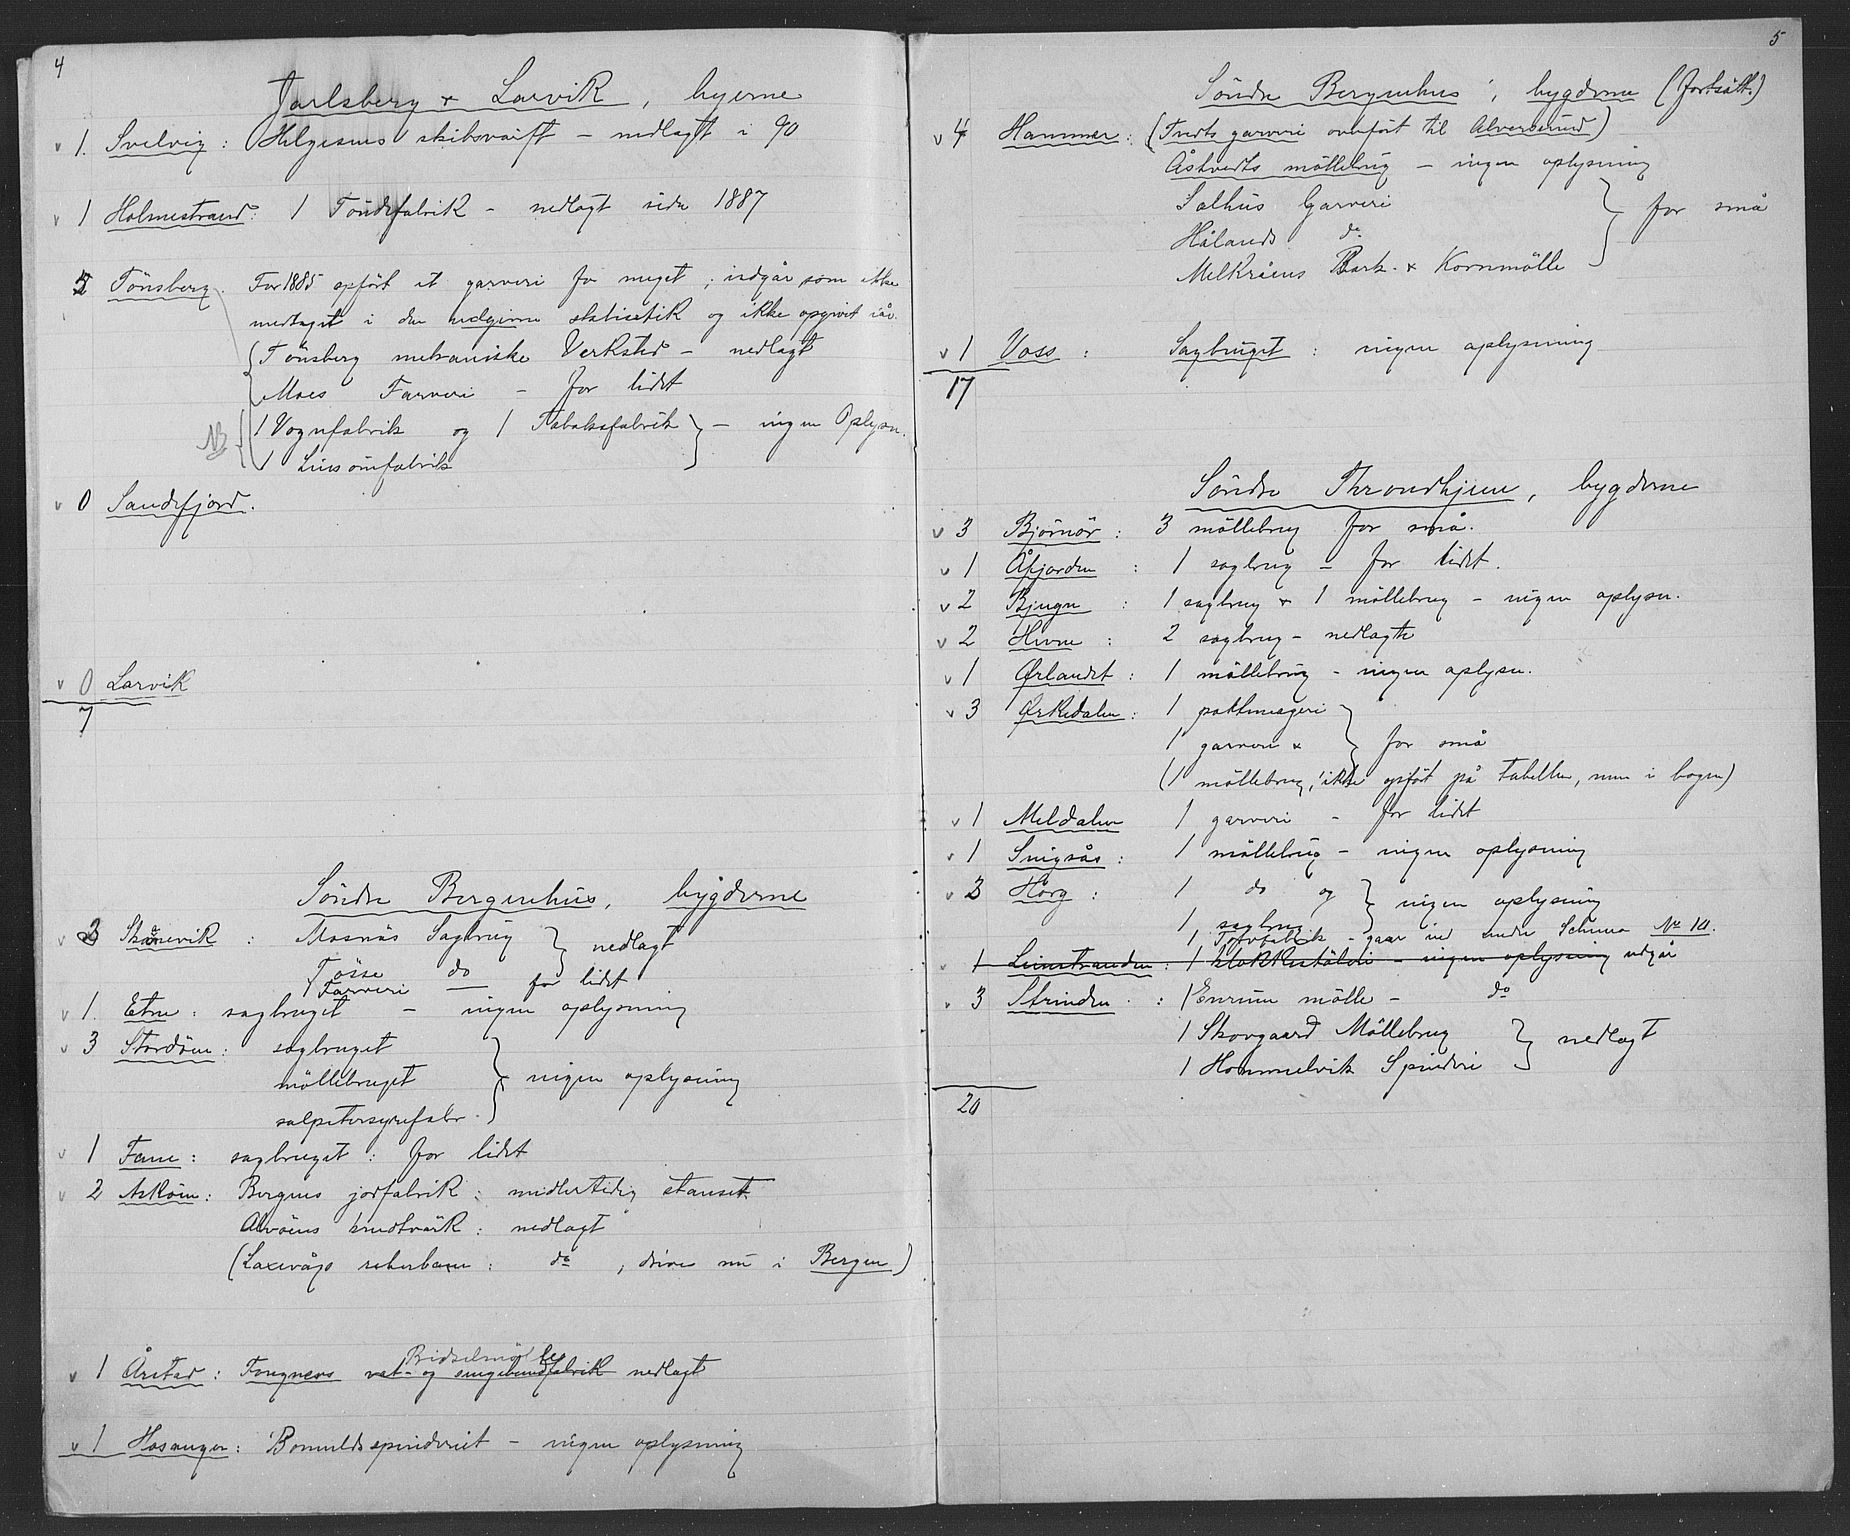 4
Jarlsberg & Larvik, byerne
v 1. Svelvig: Helgesens skibsværft – nedlagt i 90
v 1 Holmestrand: 1 Tøndefabrik – nedlagt siden 1887
5 Tönsberg. For 1885 opført et garveri for meget; indgår som ikke
medtaget i den udgivne statistik og ikke opgivet iår.
Tönsberg mekaniske Verksted – nedlagt
Moes Farveri – for lidet
NB 1 Vognfabrik og 1 Tobaksfabrik – ingen Oplysn.
1
v 0 Sandefjord.
v 0 Larvik
7
Söndre Bergenhus, bygderne
v 3 Skånevik: Mosnäs Sagbrug nedlagt
Tösse do
1 Farveri — for lidet
v 1. Etne: sagbruget – ingen oplysning
v 3 Stordöen: sagbruget
möllebruget ingen oplysning
salpetersyrefabr.
v 1 Fane: sagbruget: for lidet
v 2 Asköen: Bergens jordfabrik: midlertidig stanset
Alvöens krudtvärk: nedlagt
(Laxevågs reberbane: do, drives nu i Bergen)
Bidselmölle
v 1 Årstad: Fougners vat- og nedlagt
v 1 Hosanger: Bomuldsspinderiet – ingen oplysning
5
Söndre Bergenhus, bygderne (fortsätt.)
v 4 Hammer: (Tvedts garveri overfört til Alversund)
Åstvedts möllebrug – ingen oplysning
Salhus Garveri
Hålands do for små
Melkråens Bark- & Kornmölle
v 1 Voss: Sagbruget: ingen oplysning
17
Söndre Throndhjem, bygderne
v 3 Bjørnör: 3 möllebrug for små.
v 1 Åfjorden: 1 sagbrug – for lidet.
v 2 Bjugn: 1 sagbrug & 1 möllebrug – ingen oplysn.
v 2 Hevne: 2 sagbrug – nedlagte
v 1 Ørlandet: 1 möllebrug – ingen oplysn.
v 3 Ørkedalen: 1 pottmageri
1 garveri & for små
(1 möllebrug, ikke opfört på Tabellen, men i bogen)
v 1 Meldalen 1 garveri – for lidet
v 1 Singsås: 1 möllebrug – ingen oplysning
v 3 Hörg: 1 do og ingen oplysning
1 sagbrug
1 Torvfabrik – gaar ind under Schema No 10.
v 1 Leinstranden: 1 klokkestöberi – ingen oplysning udgår
v 3 Strinden: 1 Enrum mölle – do
1 Skovgaard Möllebrug
1 Hommelvik Spinderi nedlagt
20